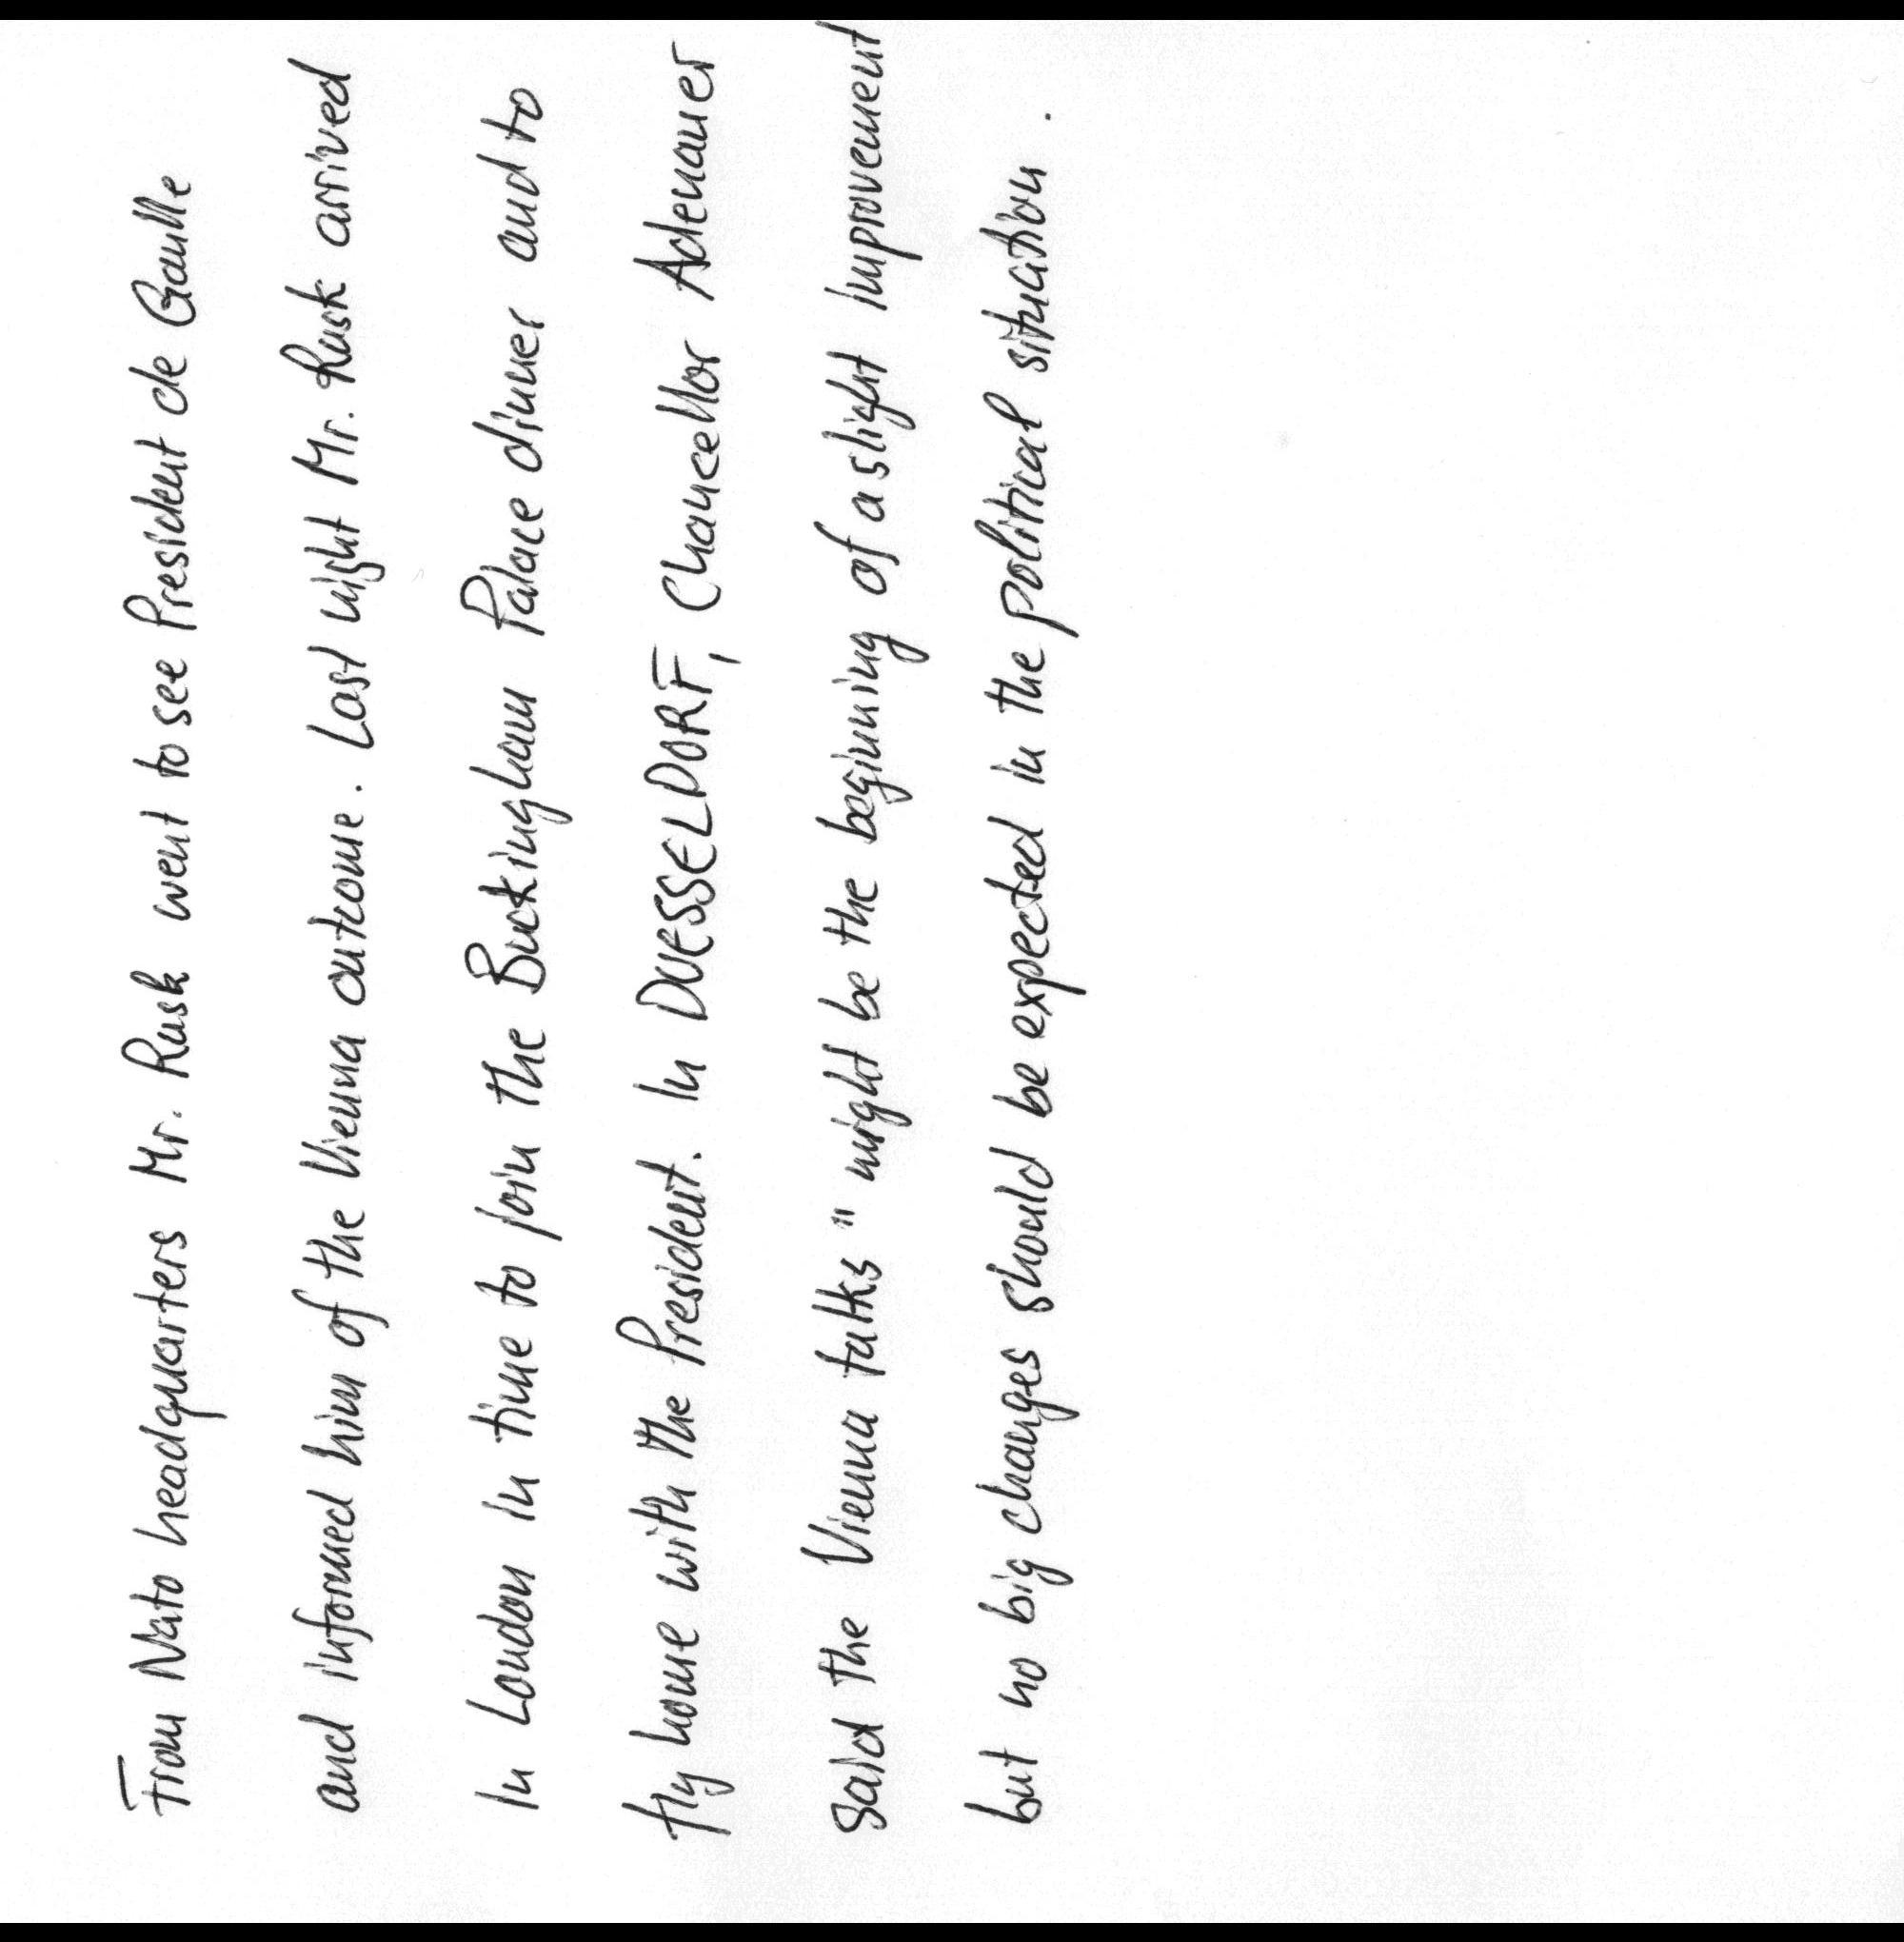 From Nato headquarters Mr. Rusk went to see President de Gaulle
and informed him of the Vienna outcome. Last night Mr. Rusk arrived
in London in time to join the Buckingham Palace dinner and to
fly home with the President. In DUESSELDORF, Chancellor Adenauer
said the Vienna talks "might be the beginning of a slight improvement
but no big changes should be expected in the political situation.